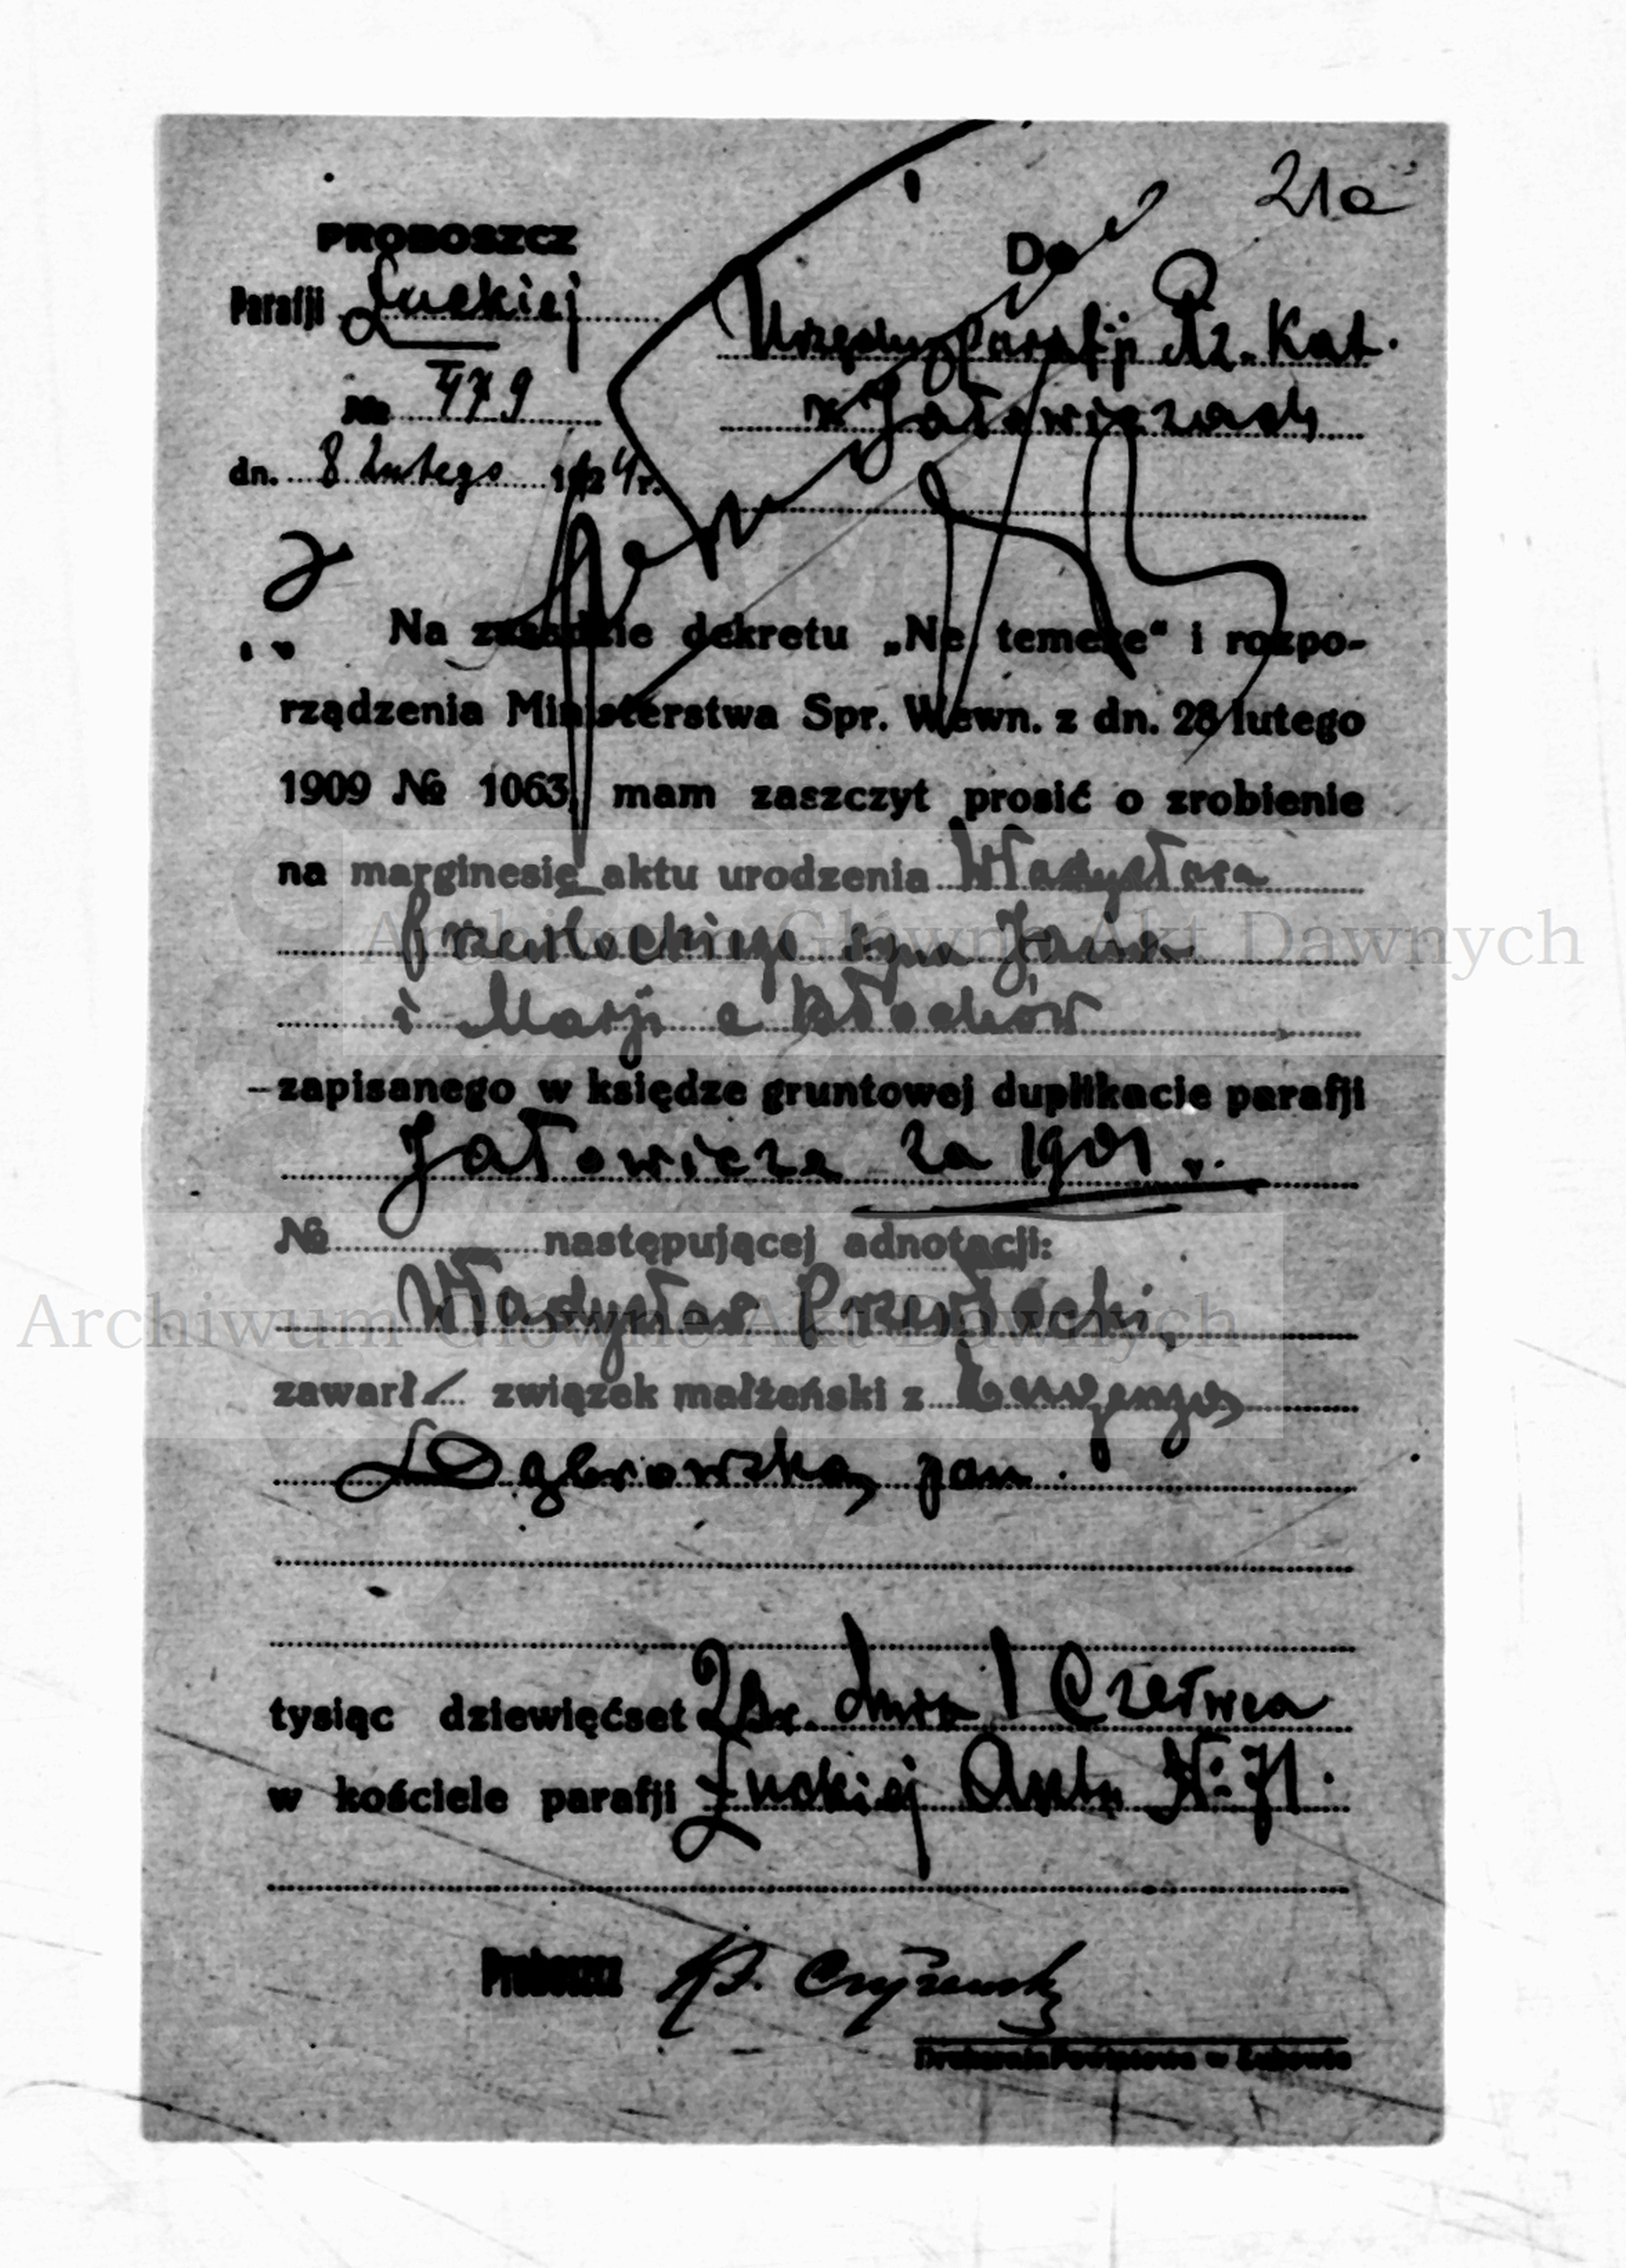 21a
PROBOSZCZ
Parafji Łuckiej
№ 479
dn. 8 Lutego 1924 r.
Do
Urzędu Parafji Rz. Kat.
w Jałowiczach
Na zasadzie dekretu „Ne temere“ i rozpo-
rządzenia Ministerstwa Spr. Wewn. z dn. 28 lutego
1909 № 1063, mam zaszczyt prosić o zrobienie
na marginesie aktu urodzenia Władysława
Przewłockiego syna Jana
i Marji z
zapisanego w księdze gruntowej duplikacie parafji
Jałowicze za 1901 r.
№ następującej adnotacji:
Władysław Przewłocki,
zawarł związek małżeński z
Dąbrowską pan.
tysiąc dziewięćset dnia 1 Czerwca
w kościele parafji Łuckiej Akt № 71.
Proboszcz
Drukarnia Powiatowa w
Archiwum Główne Akt Dawnych
Archiwum Główne Akt Dawnych